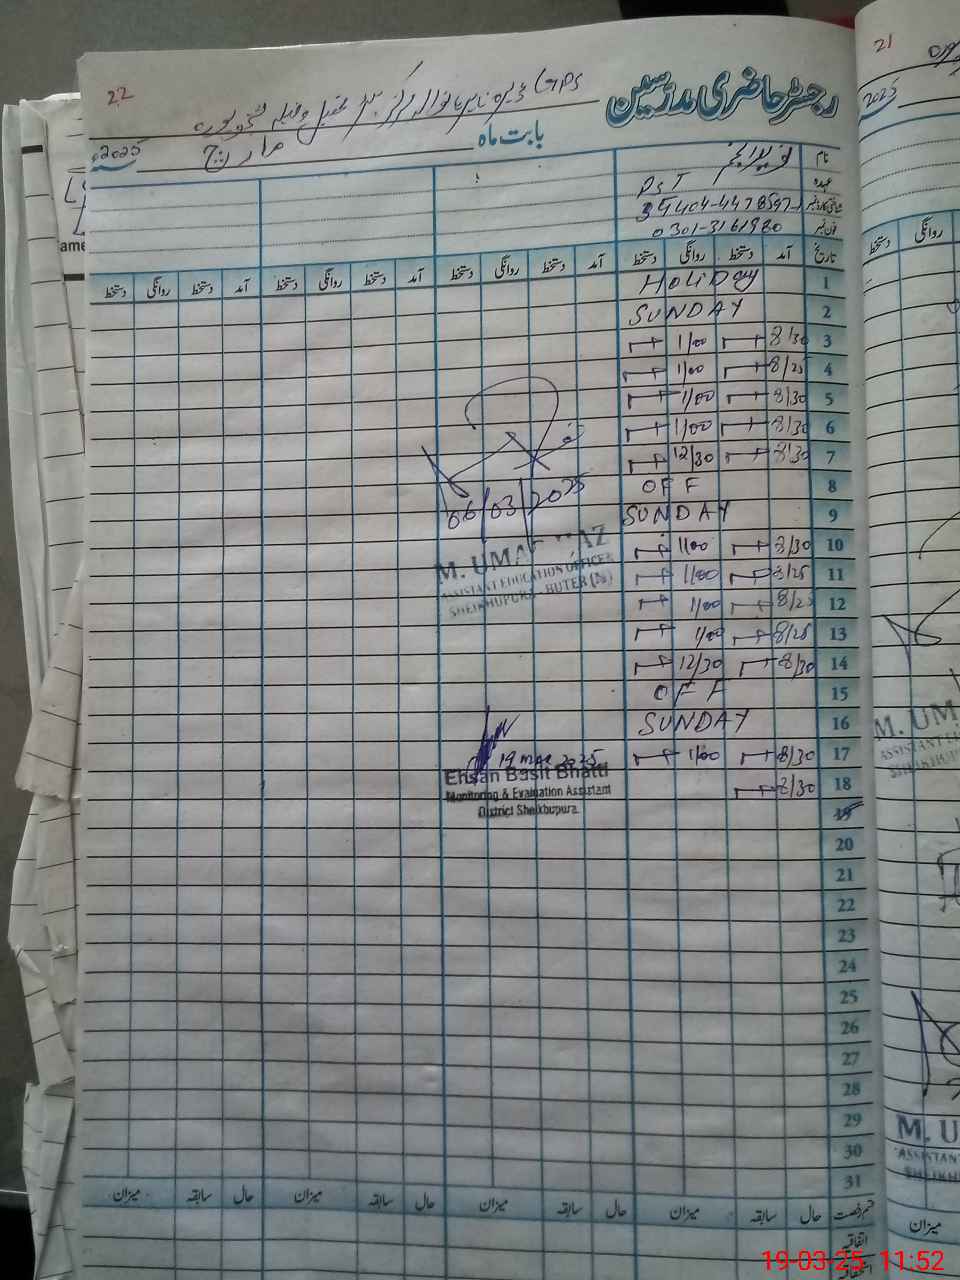 22
GPS
رجسٹر حاضری مدرسین
بابت ماہ مارچ 2025ء
نام
عہدہ PST
شناختی کارڈ نمبر
فون نمبر 0301-3161980
تاریخ آمد دستخط روانگی دستخط آمد دستخط روانگی دستخط آمد دستخط روانگی دستخط آمد دستخط روانگی دستخط
1 HOLIDAY
2 SUNDAY
3 8/30 1/00
4 8/25 1/00
5 8/30 1/00
6 8/30 1/00
7 8/30 12/30
8 OFF
9 SUNDAY
06/03/2025
10 8/30 1/00
M. UMAR
11 8/25 1/00
ASSISTANT EDUCATION OFFICER
12 8/25 1/00
SHEIKHUPURA - BUTER (N)
13 8/25 1/00
14 8/30 12/30
15 OFF
16 SUNDAY
17 8/30 1/00
19 MAR 2025
Ehsan Basit Bhatti
18 8/30
Monitoring & Evaluation Assistant
District Sheikhupura
19
20
21
22
23
24
25
26
27
28
29
30
31
قسم رخصت حال سابقہ میزان حال سابقہ میزان حال سابقہ میزان حال سابقہ میزان
اتفاقیہ
21
2025
روانگی دستخط
M. UM
ASSISTANT
M. U
ASSISTAN
میزان
19-03-25 11:52